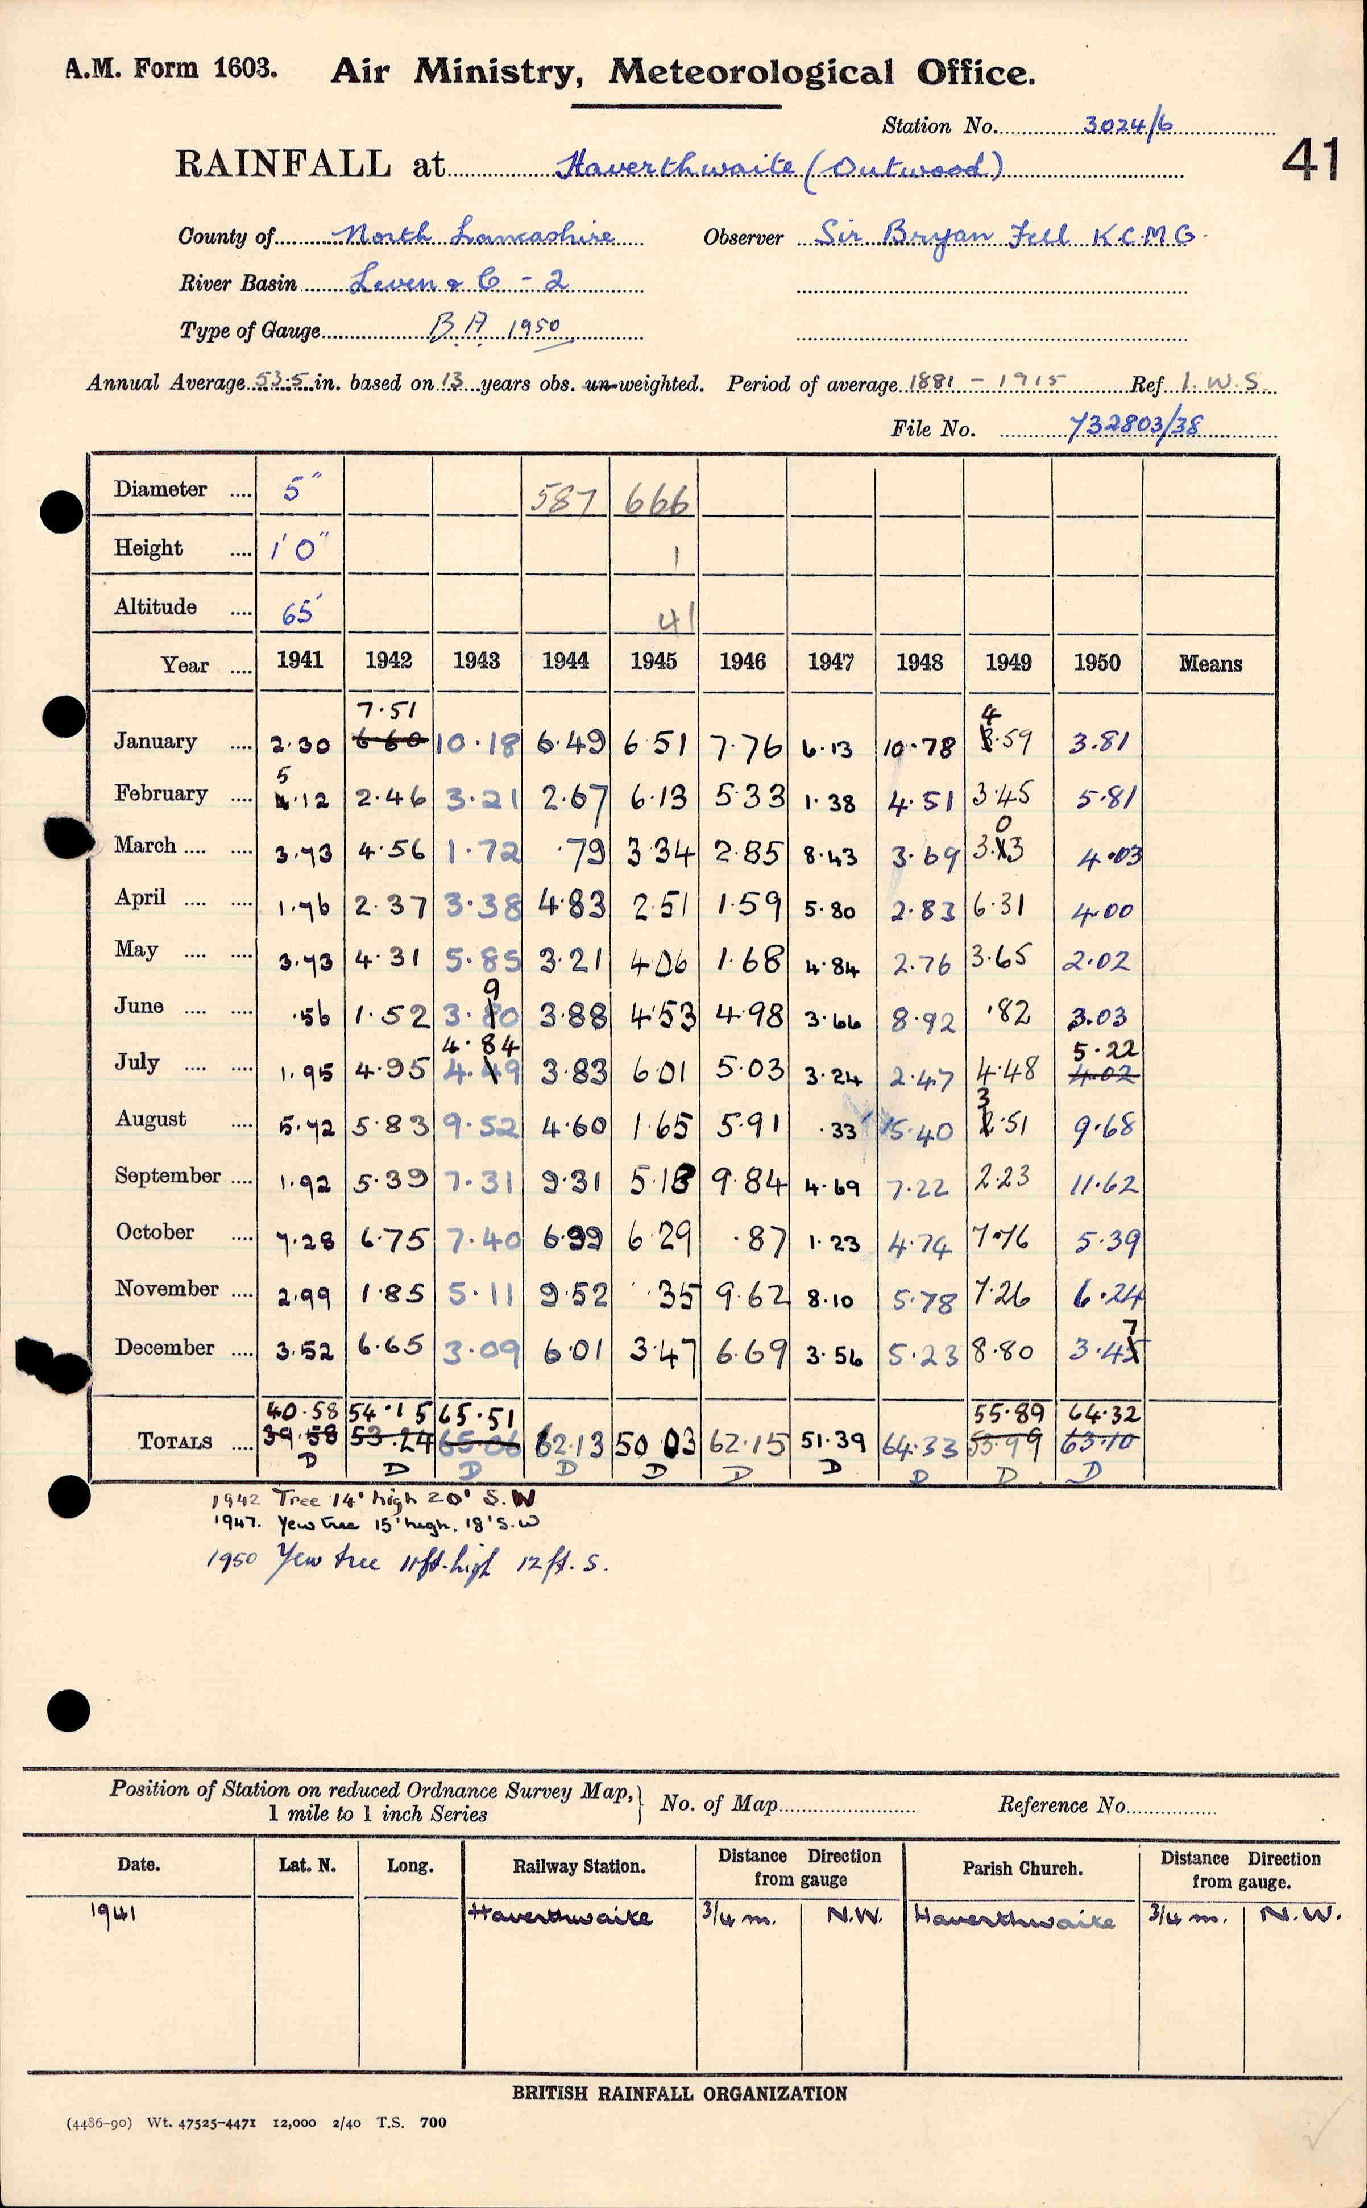 A.M. Form 1603. Air Ministry, Meteorological Office.
Station No. 3024/6
41
RAINFALL at Haverthwaite (Outwood)
County of North Lancashire Observer Sir Bryan Fell K.C.M.G.
River Basin Leven & C - 2
Type of Gauge B.A. 1950
Annual Average 53.5 in. based on 13 years obs. un-weighted. Period of average 1881 - 1915 Ref. I.W.S.
File No. 732803/38
Diameter .... 5" 587 666
Height .... 1'0" 1
Altitude .... 65' 41
Year .... 1941 1942 1943 1944 1945 1946 1947 1948 1949 1950 Means
7.51 4
January .... 2.30 6.60 10.18 6.49 6.51 7.76 6.13 10.78 3.59 3.81
5
February .... 4.12 2.46 3.21 2.67 6.13 5.33 1.38 4.51 3.45 5.81
0
March .... .... 3.73 4.56 1.72 .79 3.34 2.85 8.43 3.69 3.13 4.03
April .... .... 1.76 2.37 3.38 4.83 2.51 1.59 5.80 2.83 6.31 4.00
May .... .... 3.73 4.31 5.85 3.21 4.06 1.68 4.84 2.76 3.65 2.02
9
June .... .... .56 1.52 3.80 3.88 4.53 4.98 3.66 8.92 .82 3.03
4.84 5.22
July .... .... 1.95 4.95 4.49 3.83 6.01 5.03 3.24 2.47 4.48 4.02
3
August .... 5.72 5.83 9.52 4.60 1.65 5.91 .33 5.40 .51 9.68
September .... 1.92 5.39 7.31 9.31 5.18 9.84 4.69 7.22 2.23 11.62
October .... 7.28 6.75 7.40 6.99 6.29 .87 1.23 4.74 7.76 5.39
November .... 2.99 1.85 5.11 9.52 .35 9.62 8.10 5.78 7.26 6.24
7
December .... 3.52 6.65 3.09 6.01 3.47 6.69 3.56 5.23 8.80 3.45
40.58 54.15 65.51 55.89 64.32
TOTALS .... 39.58 53.24 65.06 62.13 50.03 62.15 51.39 64.33 55.99 63.10
D D D D D D D D D D
1942 Tree 14' high 20' S.W
1947. Yew tree 15' high. 18' S.W
1950 Yew tree 11ft. high 12 ft. S.
Position of Station on reduced Ordnance Survey Map, } No. of Map Reference No.
1 mile to 1 inch Series
Date. Lat. N. Long. Railway Station. Distance Direction from gauge Parish Church. Distance Direction from gauge.
1941 Haverthwaite 3/4 m. N.W. Haverthwaite 3/4 m. N.W.
BRITISH RAINFALL ORGANIZATION
(4486-90) Wt. 47525-4471 12,000 2/40 T.S. 700